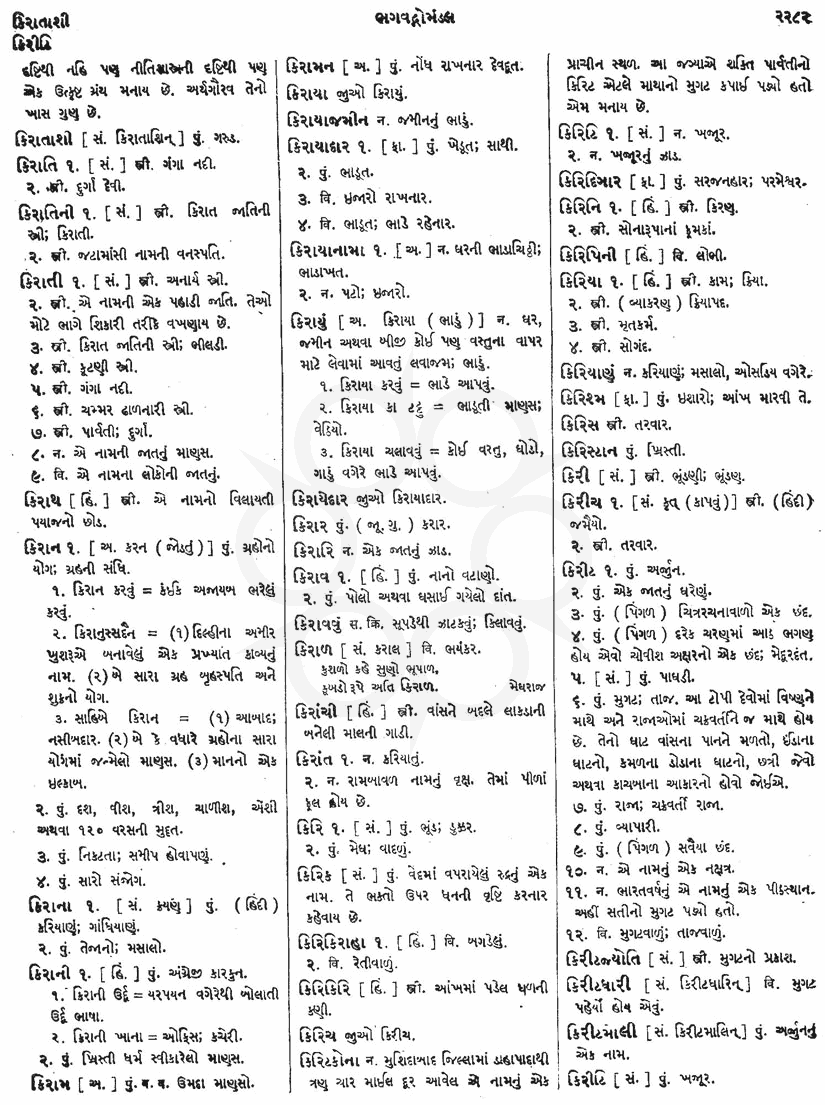 કિરાતાશી
ભગવદ્ગોમંડલ
૨૨૮૨
કિરીટિ
દૃષ્ટિથી નહિ પણ નીતિશાસ્ત્રની દૃષ્ટિથી પણ
એક ઉત્કૃષ્ટ ગ્રંથ મનાય છે. અર્થગૌરવ તેનો
ખાસ ગુણ છે.
કિરાતાશી [ સં. કિરાતાશિન્ ] પું. ગરુડ.
કિરાતિ ૧. [ સં. ] સ્ત્રી. ગંગા નદી.
૨. સ્ત્રી. દુર્ગા દેવી.
કિરાતિની ૧. [ સં. ] સ્ત્રી. કિરાત જાતિની
સ્ત્રી; કિરાતી.
૨. સ્ત્રી. જટામાંસી નામની વનસ્પતિ.
કિરાતી ૧. [ સં. ] સ્ત્રી. અનાર્ય સ્ત્રી.
૨. સ્ત્રી. એ નામની એક પહાડી જાતિ. તેઓ
મોટે ભાગે શિકારી તરીકે વખણાય છે.
૩. સ્ત્રી. કિરાત જાતિની સ્ત્રી; ભીલડી.
૪. સ્ત્રી. કુટણી સ્ત્રી.
૫. સ્ત્રી. ગંગા નદી.
૬. સ્ત્રી. ચમ્મર ઢાળનારી સ્ત્રી.
૭. સ્ત્રી. પાર્વતી; દુર્ગા.
૮. ન. એ નામની જાતનું માણસ.
૯. વિ. એ નામના લોકોની જાતનું.
કિરાથ [ હિં. ] સ્ત્રી. એ નામનો વિલાયતી
પયાજનો છોડ.
કિરાન ૧. [ અ. કરન ( જોડતું ) ] પું. ગ્રહોનો
યોગ; ગ્રહની સંધિ.
૧. કિરાન કરવું = કંઈક અજાયબ ભરેલું
કરવું.
૨. કિરાનુસ્સદૈન = (૧) દિલ્હીના અમીર
ખુશરૂએ બનાવેલું એક પ્રખ્યાત કાવ્યનું
નામ. (૨) બે સારા ગ્રહ બૃહસ્પતિ અને
શુક્રનો યોગ.
૩. સાહિબે કિરાન = (૧) આબાદ;
નસીબદાર. (૨) બે કે વધારે ગ્રહોના સારા
યોગમાં જન્મેલો માણસ. (૩) માનનો એક
ઇલ્કાબ.
૨. પું. દશ, વીશ, ત્રીશ, ચાળીશ, એંશી
અથવા ૧૨૦ વરસની મુદ્દત.
૩. પું. નિકટતા; સમીપ હોવાપણું.
૪. પું. સારો સંજોગ.
કિરાના ૧. [ સં. ક્રયણ ] પું. ( હિંદી )
કરિયાણું; ગાંધિયાણું.
૨. પું. તેજાનો; મસાલો.
કિરાની ૧. [ હિં. ] પું. અંગ્રેજી કારકુન.
૧. કિરાની ઉર્દૂ = યરપયન વગેરેથી બોલાતી
ઉર્દૂ ભાષા.
૨. કિરાની ખાના = ઓફિસ; કચેરી.
૨. પું. ખ્રિસ્તી ધર્મ સ્વીકારેલો માણસ.
કિરામ [ અ. ] પું. બ. વ. ઉમદા માણસો.
કિરામન [ અ. ] પું. નોંધ રાખનાર દેવદૂત.
કિરાયા જીઓ કિરાયું.
કિરાયાજમીન ન. જમીનનું ભાડું.
કિરાયાદાર ૧. [ ફા. ] પું. ખેડૂત; સાથી.
૨. પું. ભાડૂત.
૩. વિ. ઇજારો રાખનાર.
૪. વિ. ભાડૂત; ભાડે રહેનાર.
કિરાયાનામા ૧. [ અ. ] ન. ઘરની ભાડાચિઠ્ઠી;
ભાડાખત.
૨. ન. પટો; ઇજારો.
કિરાયું [ અ. કિરાયા ( ભાડું ) ] ન. ઘર,
જમીન અથવા બીજી કોઈ પણ વસ્તુના વાપર
માટે લેવામાં આવતું લવાજમ; ભાડું.
૧. કિરાયા કરવું = ભાડે આપવું.
૨. કિરાયા કા ટટ્ટુ = ભાડૂતી માણસ;
વેઠિયો.
૩. કિરાયા ચલાવવું = કોઈ વસ્તુ, ઘોડો,
ગાડું વગેરે ભાડે આપવું.
કિરાયેદાર જીઓ કિરાયાદાર.
કિરાર પું. ( જૂ. ગુ. ) કરાર.
કિરારિ ન. એક જાતનું ઝાડ.
કિરાવ ૧. [ હિં. ] પું. નાનો વટાણો.
૨. પું. પોલો અથવા ઘસાઈ ગયેલો દાંત.
કિરાવવું સ. ક્રિ. સૂપડેથી ઝાટકવું; ક્લિાવવું.
કિરાળ [ સં. કરાલ ] વિ. ભયંકર.
કુશળો કહે સુણો ભૂપાળ,
કુબડો રૂપે અતિ કિરાળ. મેઘરાજ
કિરાંચી [ હિં. ] સ્ત્રી. વાંસને બદલે લાકડાની
બનેલી માલની ગાડી.
કિરાંત ૧. ન. કરિયાતું.
૨. ન. રામબાવળ નામનું વૃક્ષ. તેમાં પીળાં
ફૂલ હોય છે.
કિરિ ૧. [ સં. ] પું. ભૂંડ; ડુક્કર.
૨. પું. મેઘ; વાદળું.
કિરિક [ સં. ] પું. વેદમાં વપરાયેલું રુદ્રનું એક
નામ. તે ભક્તો ઉપર ધનની વૃષ્ટિ કરનાર
કહેવાય છે.
કિરિકિરાહા ૧. [ હિં. ] વિ. બગડેલું.
૨. વિ. રેતીવાળું.
કિરિકિરિ [ હિં. ] સ્ત્રી. આંખમાં પડેલ ધૂળની
કણી.
કિરિચ જીઓ કિરીચ.
કિરિટકોના ન. મુર્શિદાબાદ જિલ્લામાં ડાહાપાદાથી
ત્રણ ચાર માઈલ દૂર આવેલ એ નામનું એક
પ્રાચીન સ્થળ. આ જગ્યાએ શક્તિ પાર્વતીનો
કિરિટ એટલે માથાનો મુગટ કપાઈ પડ્યો હતો
એમ મનાય છે.
કિરિટિ ૧. [ સં. ] ન. ખજૂર.
૨. ન. ખજૂરનું ઝાડ.
કિરિદિગાર [ ફા. ] પું. સરજનહાર; પરમેશ્વર.
કિરિનિ ૧. [ હિં. ] સ્ત્રી. કિરણ.
૨. સ્ત્રી. સોનારૂપાનાં ફૂમકાં.
કિરિપિની [ હિં. ] વિ. લોભી.
કિરિયા ૧. [ હિં. ] સ્ત્રી. કામ; ક્રિયા.
૨. સ્ત્રી. ( વ્યાકરણ ) ક્રિયાપદ.
૩. સ્ત્રી. મૃતકર્મ.
૪. સ્ત્રી. સોગંદ.
કિરિયાણું ન. કરિયાણું; મસાલો, ઓસડિય વગેરે.
કિરિશ્મ [ ફા. ] પું. ઇશારો; આંખ મારવી તે.
કિરિસ સ્ત્રી. તરવાર.
કિરિસ્ટાન પું. ખ્રિસ્તી.
કિરી [ સં. ] સ્ત્રી. ભૂંડણી; ભૂંડણ.
કિરીચ ૧. [ સં. કૃત્ ( કાપવું ) ] સ્ત્રી. (હિંદી)
જમૈયો.
૨. સ્ત્રી. તરવાર.
કિરીટ ૧. પું. અર્જુન.
૨. પું. એક જાતનું ઘરેણું.
૩. પું. ( પિંગળ ) ચિત્રરચનાવાળો એક છંદ.
૪. પું. ( પિંગળ ) દરેક ચરણમાં આઠ ભગણ
હોય એવો ચોવીશ અક્ષરનો એક છંદ; મેદુરદંત.
૫. [ સં. ] પું. પાઘડી.
૬. પું. મુગટ; તાજ. આ ટોપી દેવોમાં વિષ્ણુને
માથે અને રાજાઓમાં ચક્રવર્તિને જ માથે હોય
છે. તેનો ઘાટ વાંસના પાનને મળતો, ઈંડાના
ઘાટનો, કમળના ડોડાના ઘાટનો, છત્રી જેવો
અથવા કાચબાના આકારનો હોવો જોઈએ.
૭. પું. રાજા; ચક્રવર્તી રાજા.
૮. પું. વ્યાપારી.
૯. પું. ( પિંગળ ) સવૈયા છંદ.
૧૦. ન. એ નામનું એક નક્ષત્ર.
૧૧. ન. ભારતવર્ષનું એ નામનું એક પીઠસ્થાન.
અહીં સતીનો મુગટ પડ્યો હતો.
૧૨. વિ. મુગટવાળું; તાજવાળું.
કિરીટજ્યોતિ [ સં. ] સ્ત્રી. મુગટનો પ્રકાશ.
કિરીટધારી [ સં. કિરીટધારિન્ ] વિ. મુગટ
પહેર્યો હોય એવું.
કિરીટમાલી [ સં. કિરીટમાલિન્ ] પું. અર્જુનનું
એક નામ.
કિરીટિ [ સં. ] પું. ખજૂર.